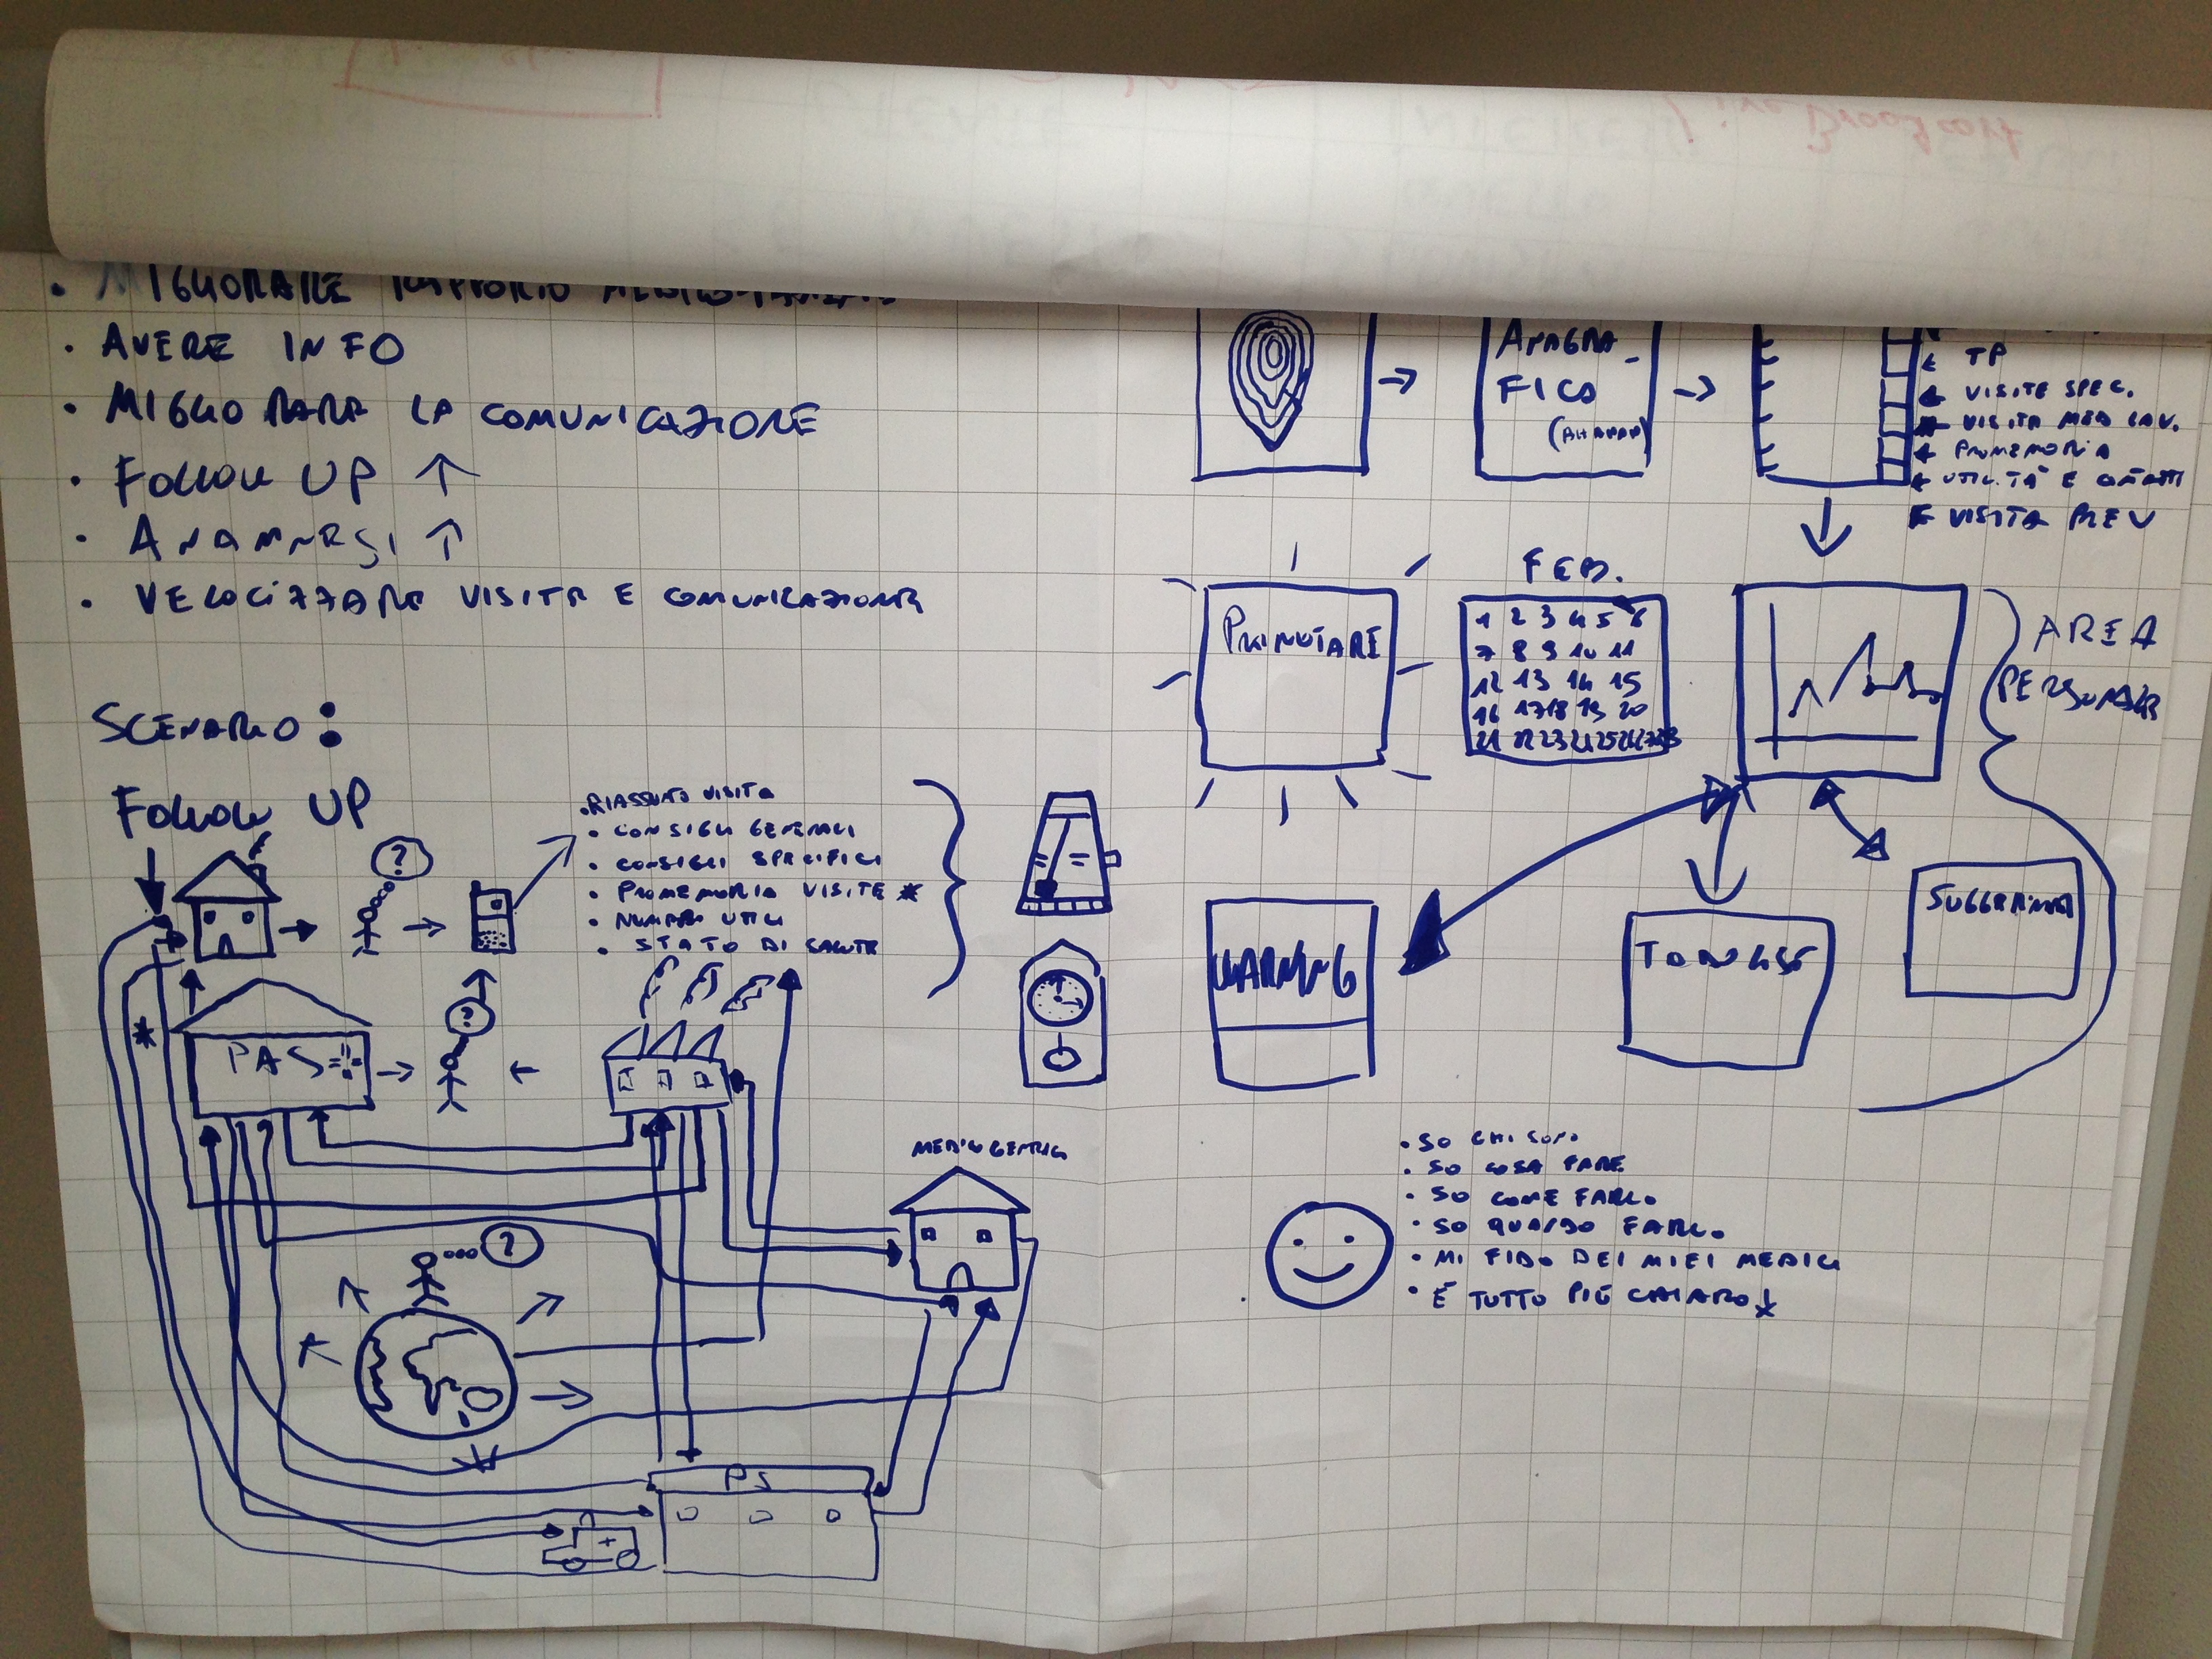 MIGLIORARE RAPPORTO
• AVERE INFO
• MIGLIORARE LA COMUNICAZIONE
• FOLLOW UP ↑
• ANAMNESI ↑
• VELOCIZZARE VISITE E COMUNICAZIONE
SCENARIO:
FOLLOW UP
• RIASSUNTO VISITA
• CONSIGLI GENERALI
• CONSIGLI SPECIFICI
• PROMEMORIA VISITE *
• NUMERI UTILI
• STATO DI SALUTE
?
?
*
PAS
MEDICO
?
PS
ANAGRA-
FICO
TP
VISITE SPEC.
VISITA MED LAV.
PROMEMORIA
UTILITÀ E
VISITA PREV
FEB.
1 2 3 4 5 6
7 8 9 10 11
12 13 14 15
16 17 18 19 20
21 22 23 24 25 26 27 28
AREA
PERSONALE
WARNING
• SO CHI SONO
• SO COSA FARE
• SO COME FARLO
• SO QUANDO FARLO
• MI FIDO DEI MIEI MEDICI
• È TUTTO PIÙ CHIARO!
Live Broadcast